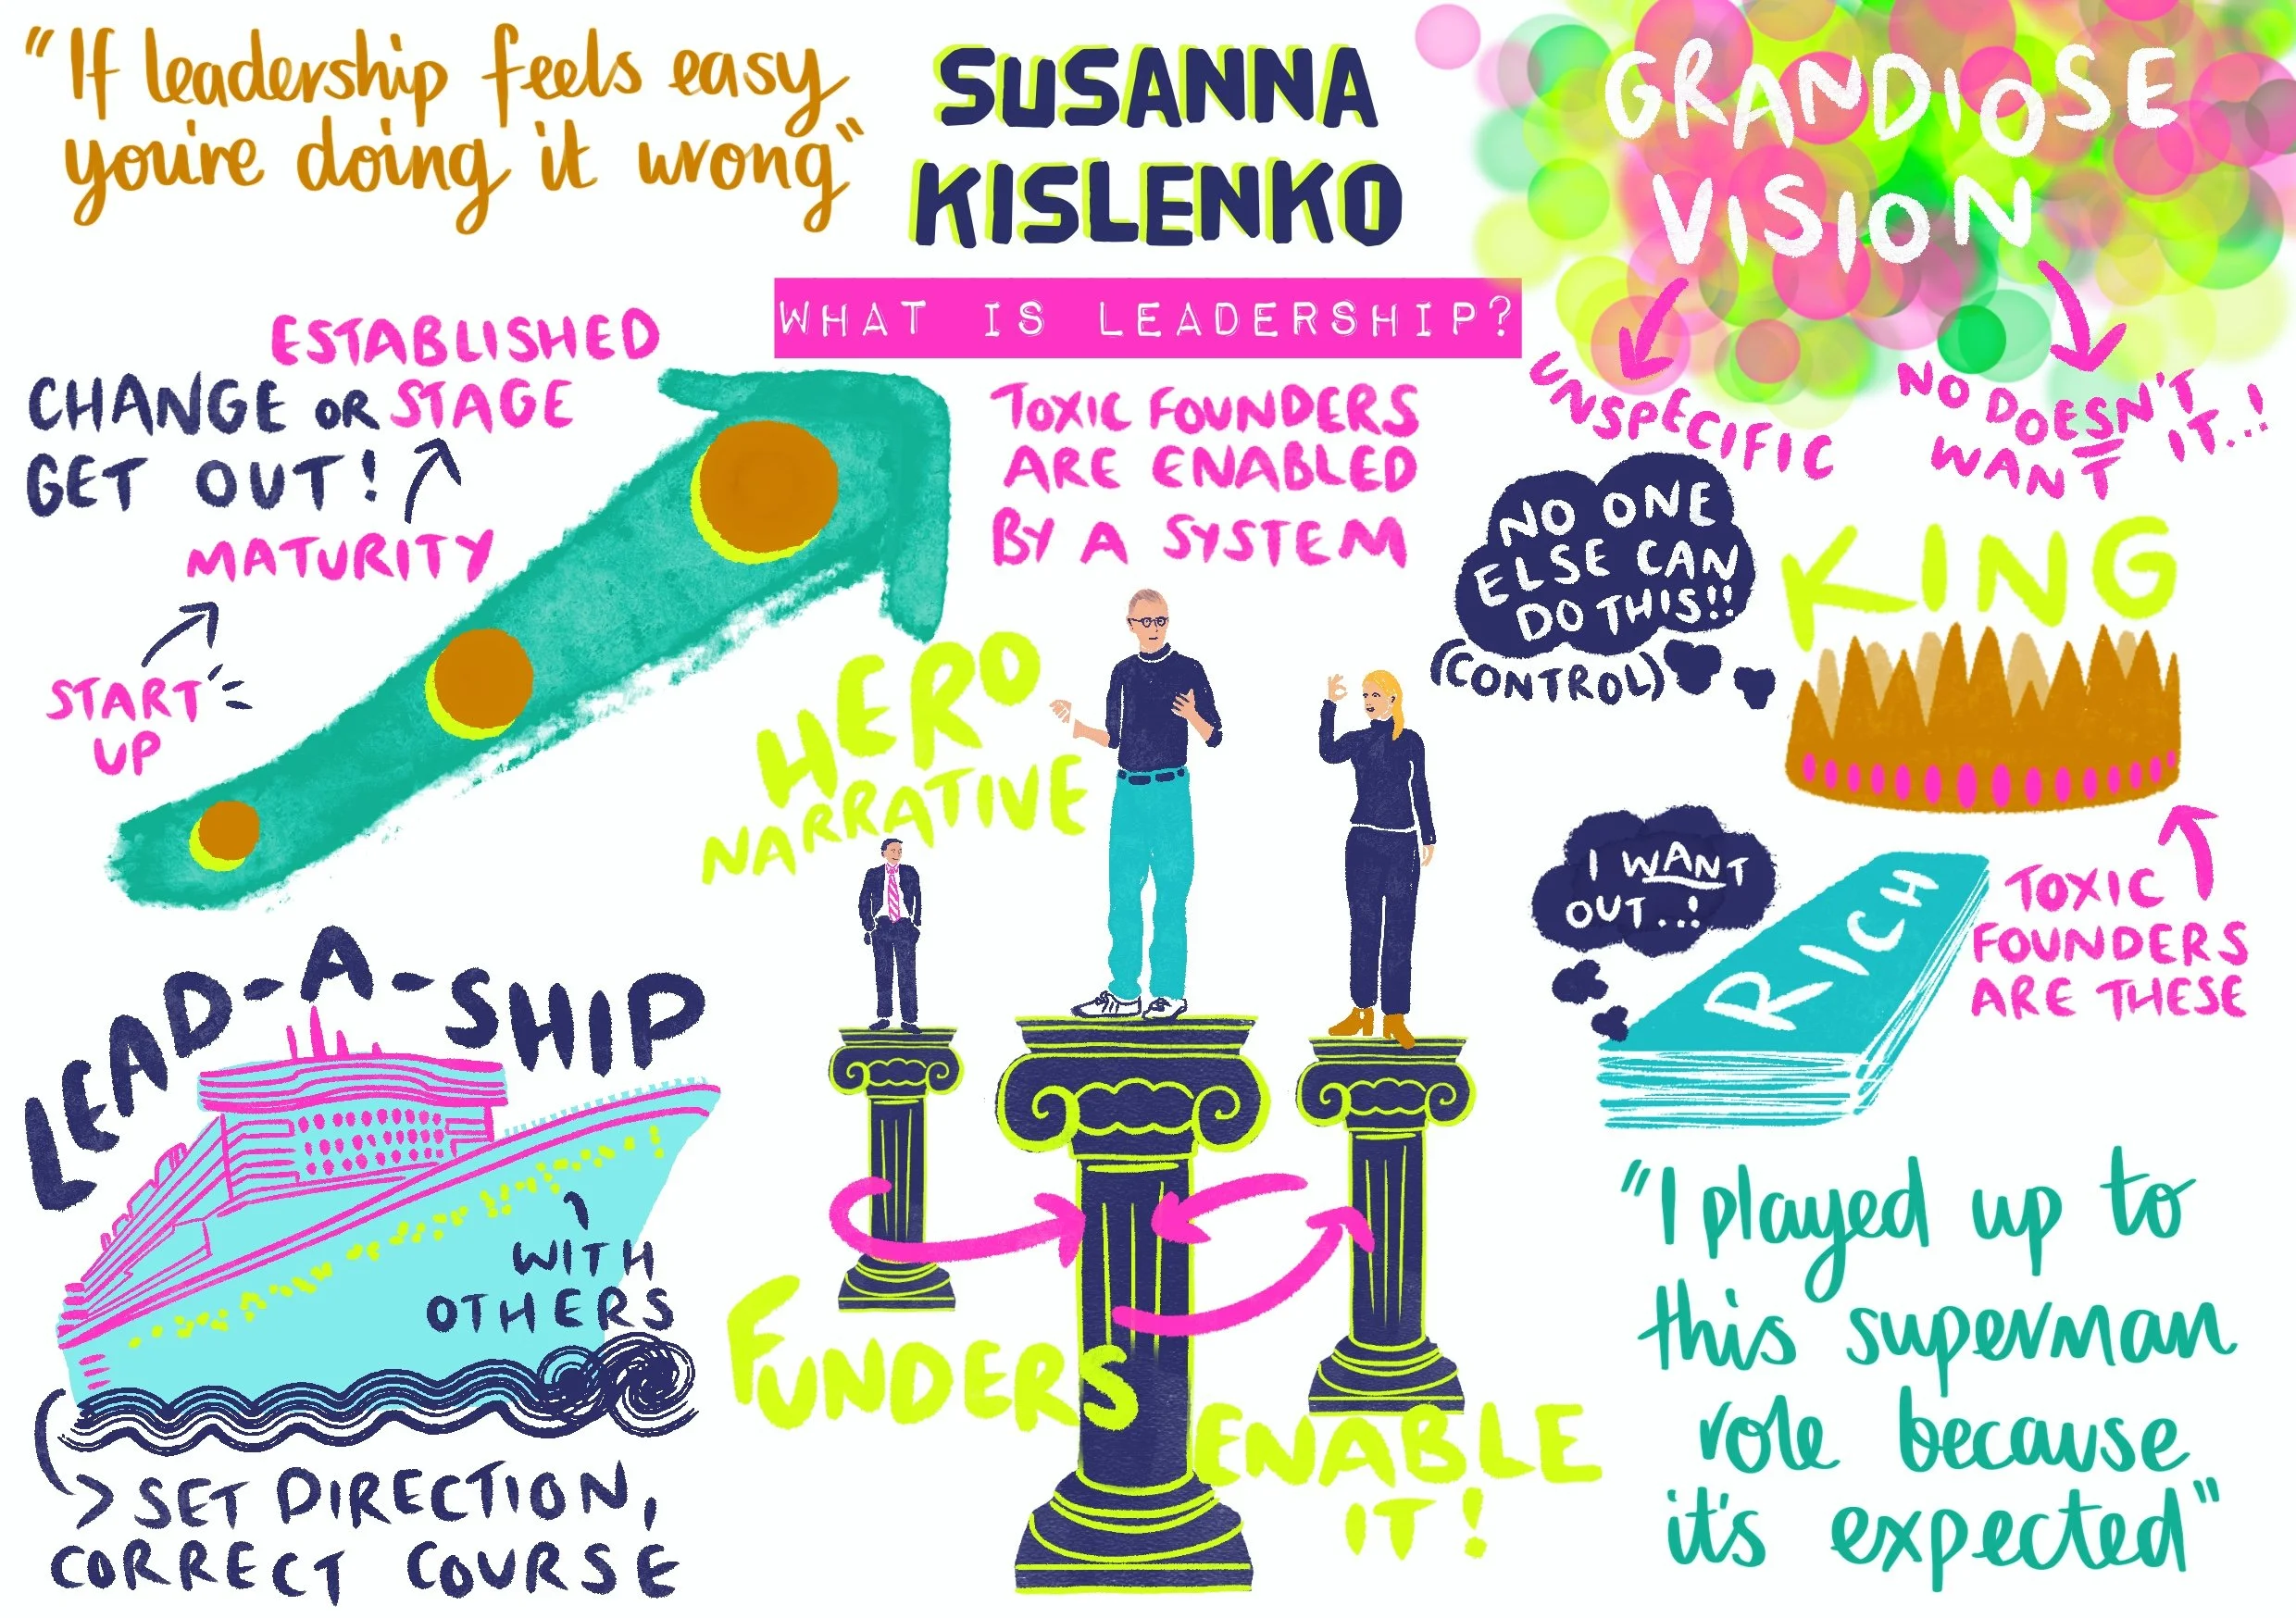 "If leadership feels easy
you're doing it wrong"
SUSANNA
KISLENKO
WHAT IS LEADERSHIP?
GRANDIOSE
VISION
UNSPECIFIC
NO DOESN'T
WANT IT..!
ESTABLISHED
CHANGE OR STAGE
GET OUT!
MATURITY
START
UP
TOXIC FOUNDERS
ARE ENABLED
BY A SYSTEM
NO ONE
ELSE CAN
DO THIS!!
(CONTROL)
KING
HERO
NARRATIVE
I WANT
OUT..!
RICH
TOXIC
FOUNDERS
ARE THESE
LEAD-A-SHIP
WITH
OTHERS
SET DIRECTION,
CORRECT COURSE
FUNDERS
ENABLE
IT!
"I played up to
this superman
role because
it's expected"